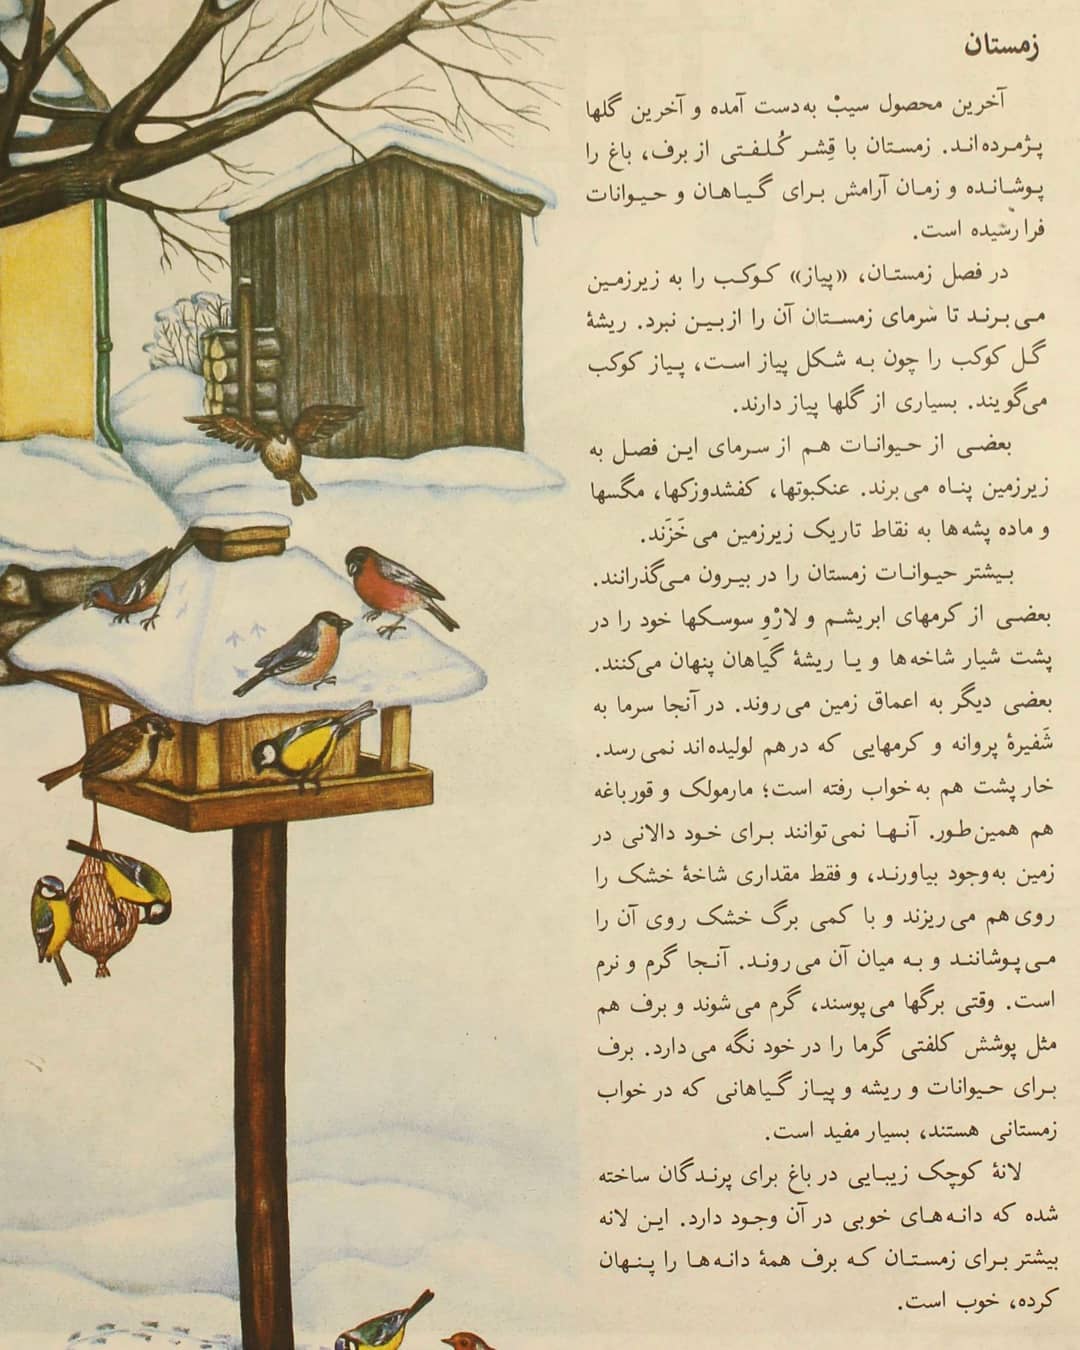 زمستان
آخرین محصول سیبْ به‌دست آمده و آخرین گلها
پژمرده‌اند. زمستان با قِشر کُلفتی از برف، باغ را
پوشانده و زمان آرامش برای گیاهان و حیوانات
فرا رسیده است.
در فصل زمستان، «پیاز» کوکب را به زیرزمین
می‌برند تا سرمای زمستان آن را ازبین نبرد. ریشهٔ
گل کوکب را چون به شکل پیاز است، پیاز کوکب
می‌گویند. بسیاری از گلها پیاز دارند.
بعضی از حیوانات هم از سرمای این فصل به
زیرزمین پناه می‌برند. عنکبوتها، کفشدوزکها، مگسها
و ماده پشه‌ها به نقاط تاریک زیرزمین می‌خَزَند.
بیشتر حیوانات زمستان را در بیرون می‌گذرانند.
بعضی از کرمهای ابریشم و لارْوِ سوسکها خود را در
پشت شیار شاخه‌ها و یا ریشهٔ گیاهان پنهان می‌کنند.
بعضی دیگر به اعماق زمین می‌روند. در آنجا سرما به
شَفیرهٔ پروانه و کرمهایی که درهم لولیده‌اند نمی‌رسد.
خارپشت هم به‌خواب رفته است؛ مارمولک و قورباغه
هم همین‌طور. آنها نمی‌توانند برای خود دالانی در
زمین به‌وجود بیاورند، و فقط مقداری شاخهٔ خشک را
روی‌هم می‌ریزند و با کمی برگ خشک روی آن را
می‌پوشانند و به میان آن می‌روند. آنجا گرم و نرم
است. وقتی برگها می‌پوسند، گرم می‌شوند و برف هم
مثل پوشش کلفتی گرما را در خود نگه می‌دارد. برف
برای حیوانات و ریشه و پیاز گیاهانی که در خواب
زمستانی هستند، بسیار مفید است.
لانهٔ کوچک زیبایی در باغ برای پرندگان ساخته
شده که دانه‌های خوبی در آن وجود دارد. این لانه
بیشتر برای زمستان که برف همهٔ دانه‌ها را پنهان
کرده، خوب است.